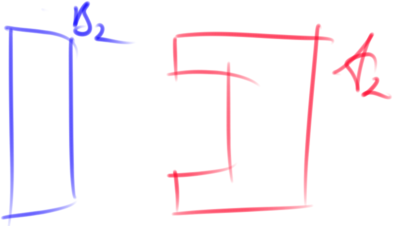 B₂
A₂